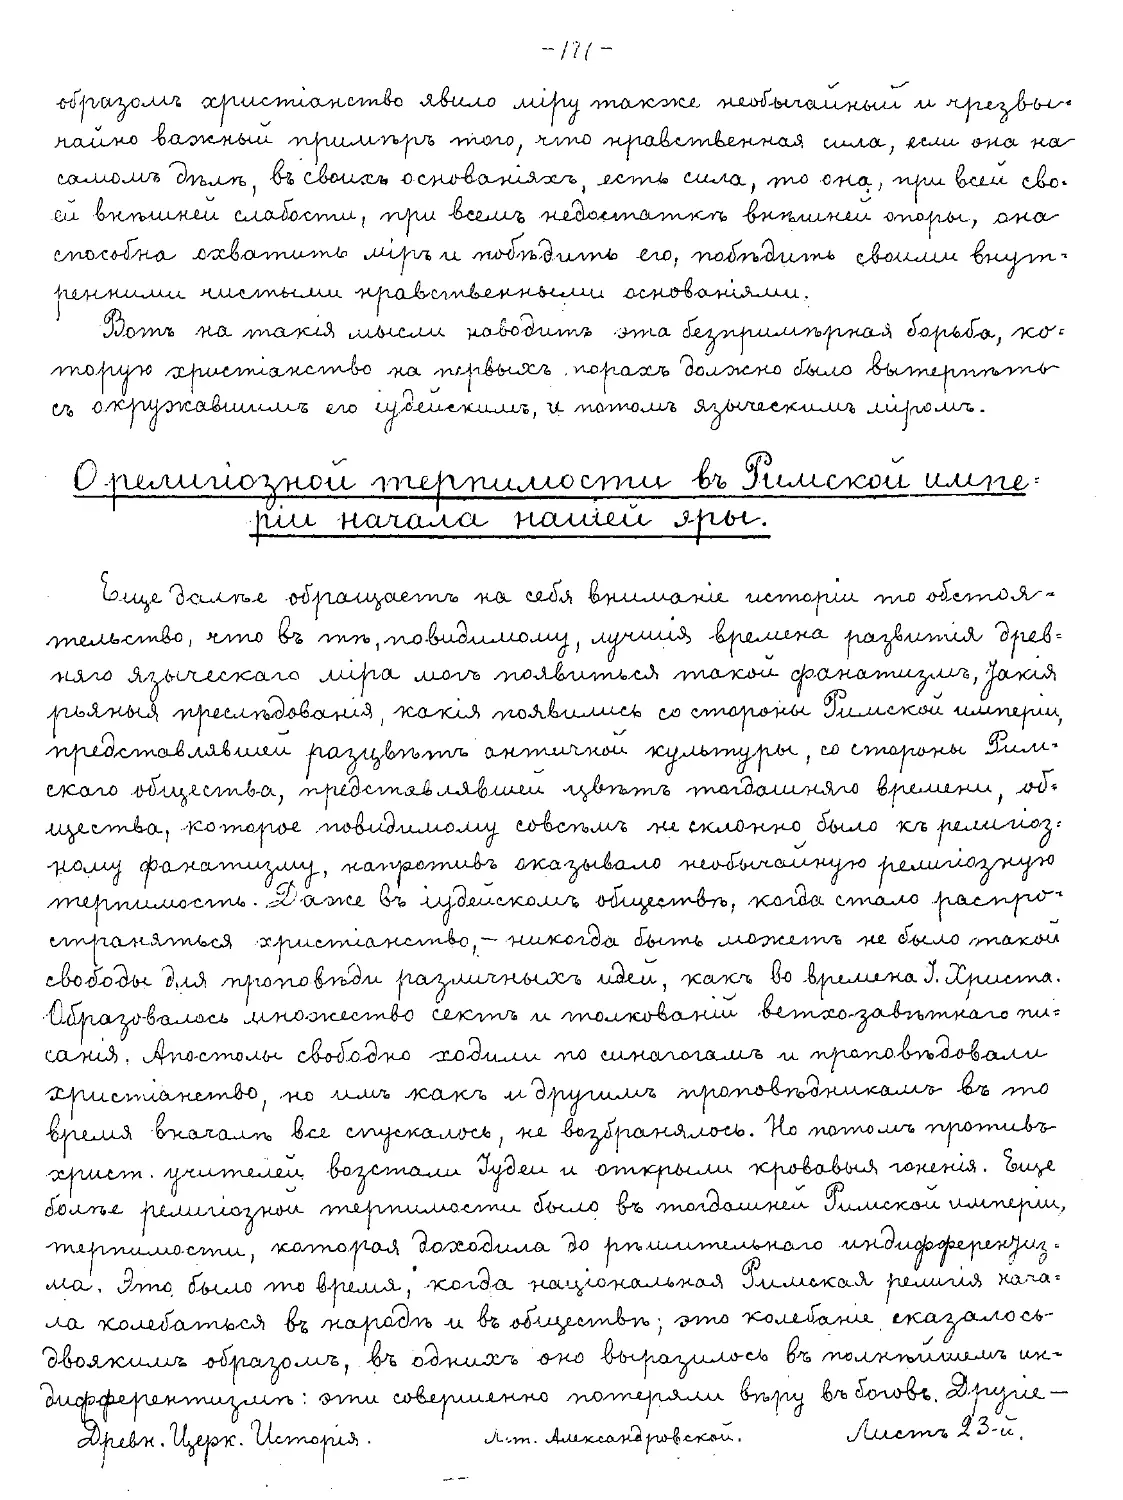 -171-
образомъ христіанство явило міру также необычайный и чрезвы-
чайно важный примѣръ того, что нравственная сила, если она на
самомъ дѣлѣ, въ своихъ основаніяхъ, есть сила, то она, при всей сво-
ей внѣшней слабости, при всемъ недостаткѣ внѣшней опоры, она
способна охватить міръ и побѣдить его, побѣдить своими внут-
ренними чистыми нравственными основаніями.
Вотъ на такія мысли наводитъ эта безпримѣрная борьба, ко-
торую христіанство на первыхъ порахъ должно было вытерпѣть
съ окружавшимъ его іудейскимъ, и потомъ языческимъ міромъ.
О религіозной терпимости въ Римской импе-
ріи начала нашей эры.
Еще далѣе обращаетъ на себя вниманіе исторіи то обстоя-
тельство, что въ тѣ, повидимому, лучшія времена развитія древ-
няго языческаго міра могъ появиться такой фанатизмъ, такія
рьяныя преслѣдованія, какія появились со стороны Римской имперіи,
представлявшей разцвѣтъ античной культуры, со стороны Рим-
скаго общества, представлявшей цвѣтъ тогдашняго времени, об-
щества, которое повидимому совсѣмъ не склонно было къ религіоз-
ному фанатизму, напротивъ оказывало необычайную религіозную
терпимость. Даже въ іудейскомъ обществѣ, когда стало распро-
страняться христіанство,- никогда быть можетъ не было такой
свободы для проповѣди различныхъ идей, какъ во времена І. Христа.
Образовалось множество сектъ и толкованій ветхо-завѣтнаго пи-
санія. Апостолы свободно ходили по синагогамъ и проповѣдовали
христіанство, но имъ какъ и другимъ проповѣдникамъ въ то
время вначалѣ все спускалось, не возбранялось. Но потомъ противъ
христ. учителей возстали Іудеи и открыли кровавыя гоненія. Еще
болѣе религіозной терпимости было въ тогдашней Римской имперіи,
терпимости, которая доходила до рѣшительнаго индифферентиз-
ма. Это было то время, когда національная Римская религія нача-
ла колебаться въ народѣ и въ обществѣ; это колебаніе сказалось
двоякимъ образомъ, въ однихъ оно выразилось въ полнѣйшемъ ин-
дифферентизмѣ: эти совершенно потеряли вѣру въ боговъ. Другіе —
Древн. Церк. Исторія. Лит. Александровской. Листъ 23-й.